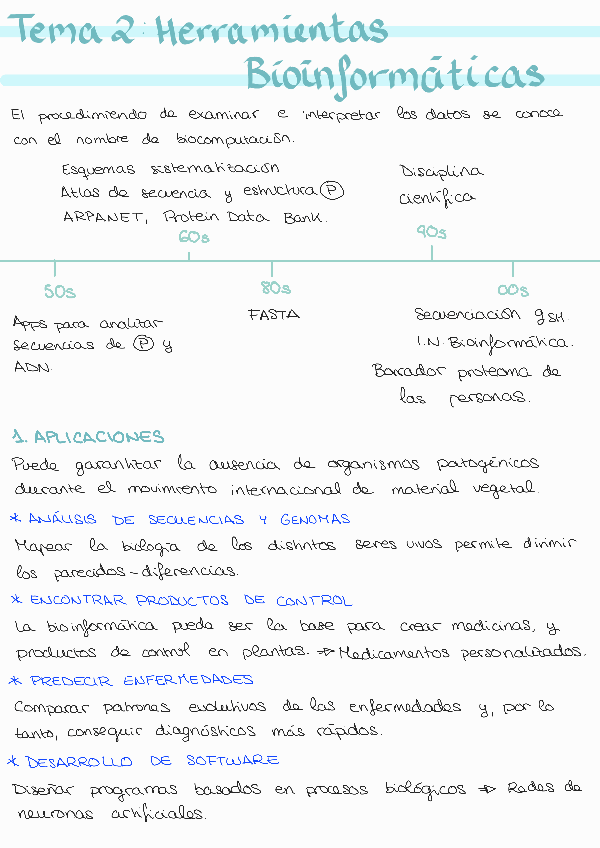 Tema 2: Herramientas
Bioinformáticas
El procedimiendo de examinar e interpretar los datos se conoce
con el nombre de biocomputación.
Esquemas sistematización
Atlas de secuencia y estructura P
ARPANET, Protein Data Bank.
Disciplina
científica
60s
90s
50s
80s
00s
Apps para analizar
secuencias de P y
ADN.
FASTA
Secuenciación gSH.
I.N. Bioinformática.
Borrador proteoma de
las personas.
1. APLICACIONES
Puede garantizar la ausencia de organismos patogénicos
durante el movimiento internacional de material vegetal.
* ANÁLISIS DE SECUENCIAS Y GENOMAS
Mapear la biología de los distintos seres vivos permite dirimir
los parecidos-diferencias.
* ENCONTRAR PRODUCTOS DE CONTROL
La bioinformática puede ser la base para crear medicinas, y
productos de control en plantas. ⇒ Medicamentos personalizados.
* PREDECIR ENFERMEDADES
Comparar patrones evolutivos de las enfermedades y, por lo
tanto, conseguir diagnósticos más rápidos.
* DESARROLLO DE SOFTWARE
Diseñar programas basados en procesos biológicos ⇒ Redes de
neuronas artificiales.